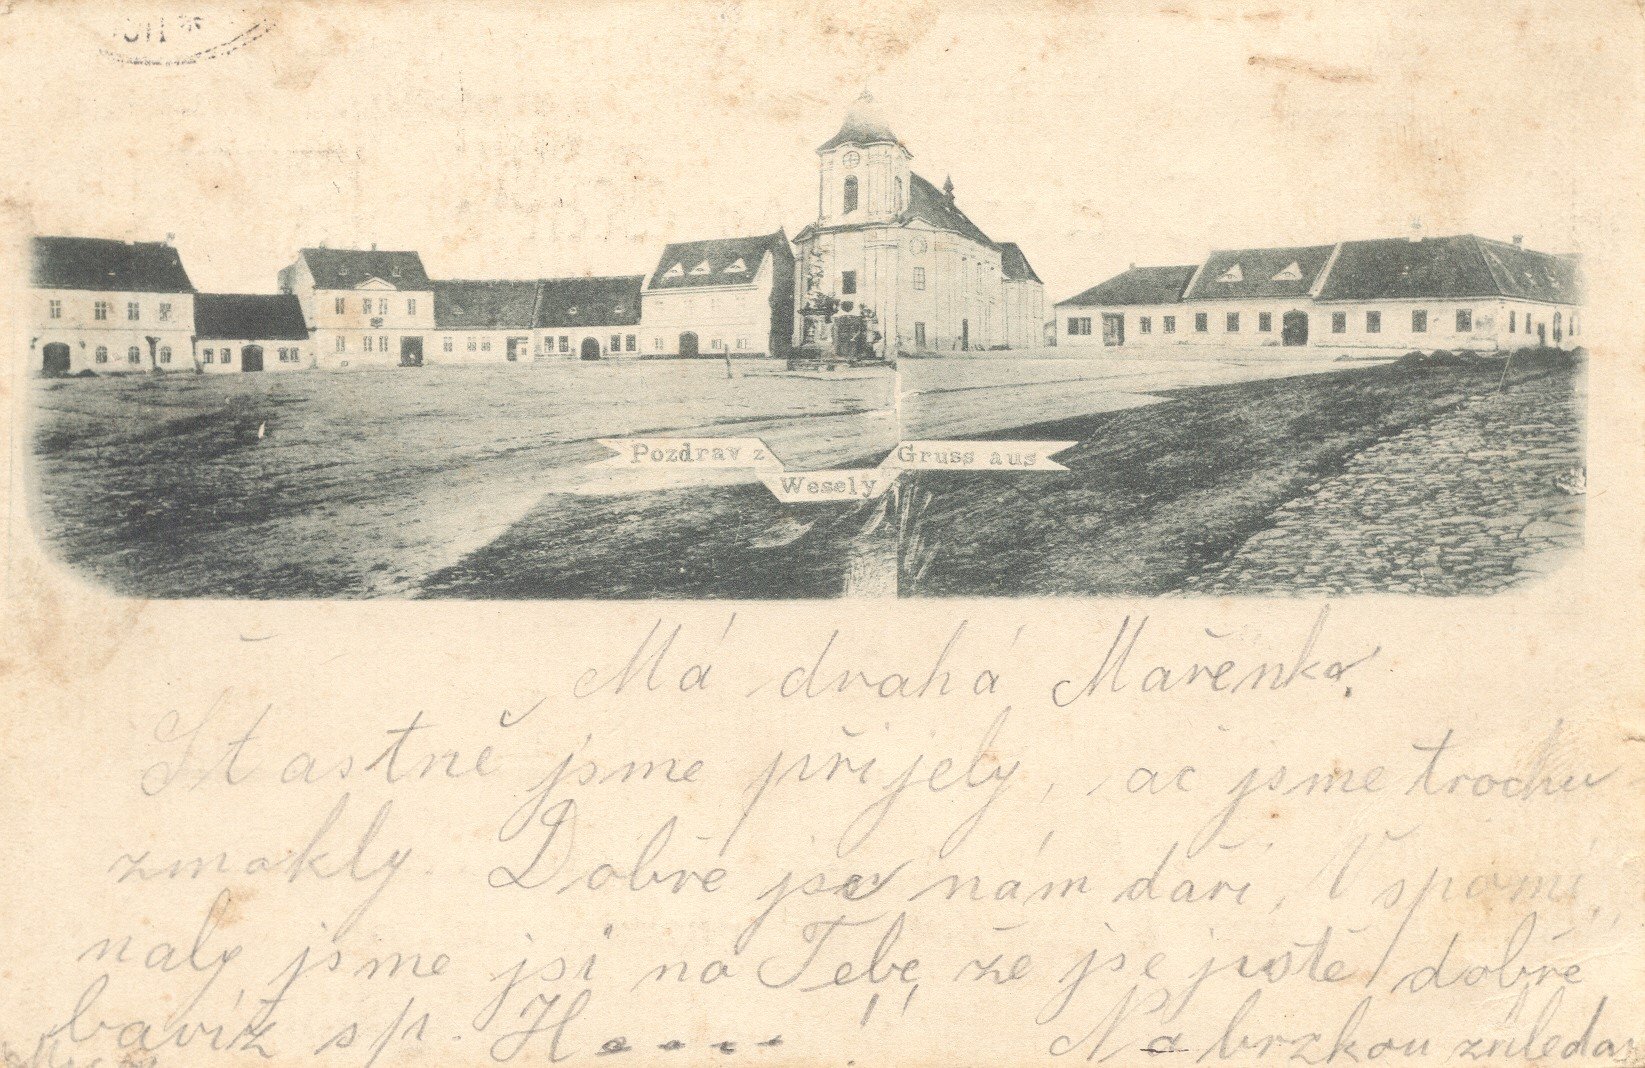 Pozdrav z
Gruss aus
Wesely
Má drahá Mařenko,
Šťastně jsme přijely, ač jsme trochu
zmokly. Dobře jse nám daří, Vspomí,
naly jsme jsi na Tebe že jse jistě dobře
bavíž sp. H.... !!
Na brzkou